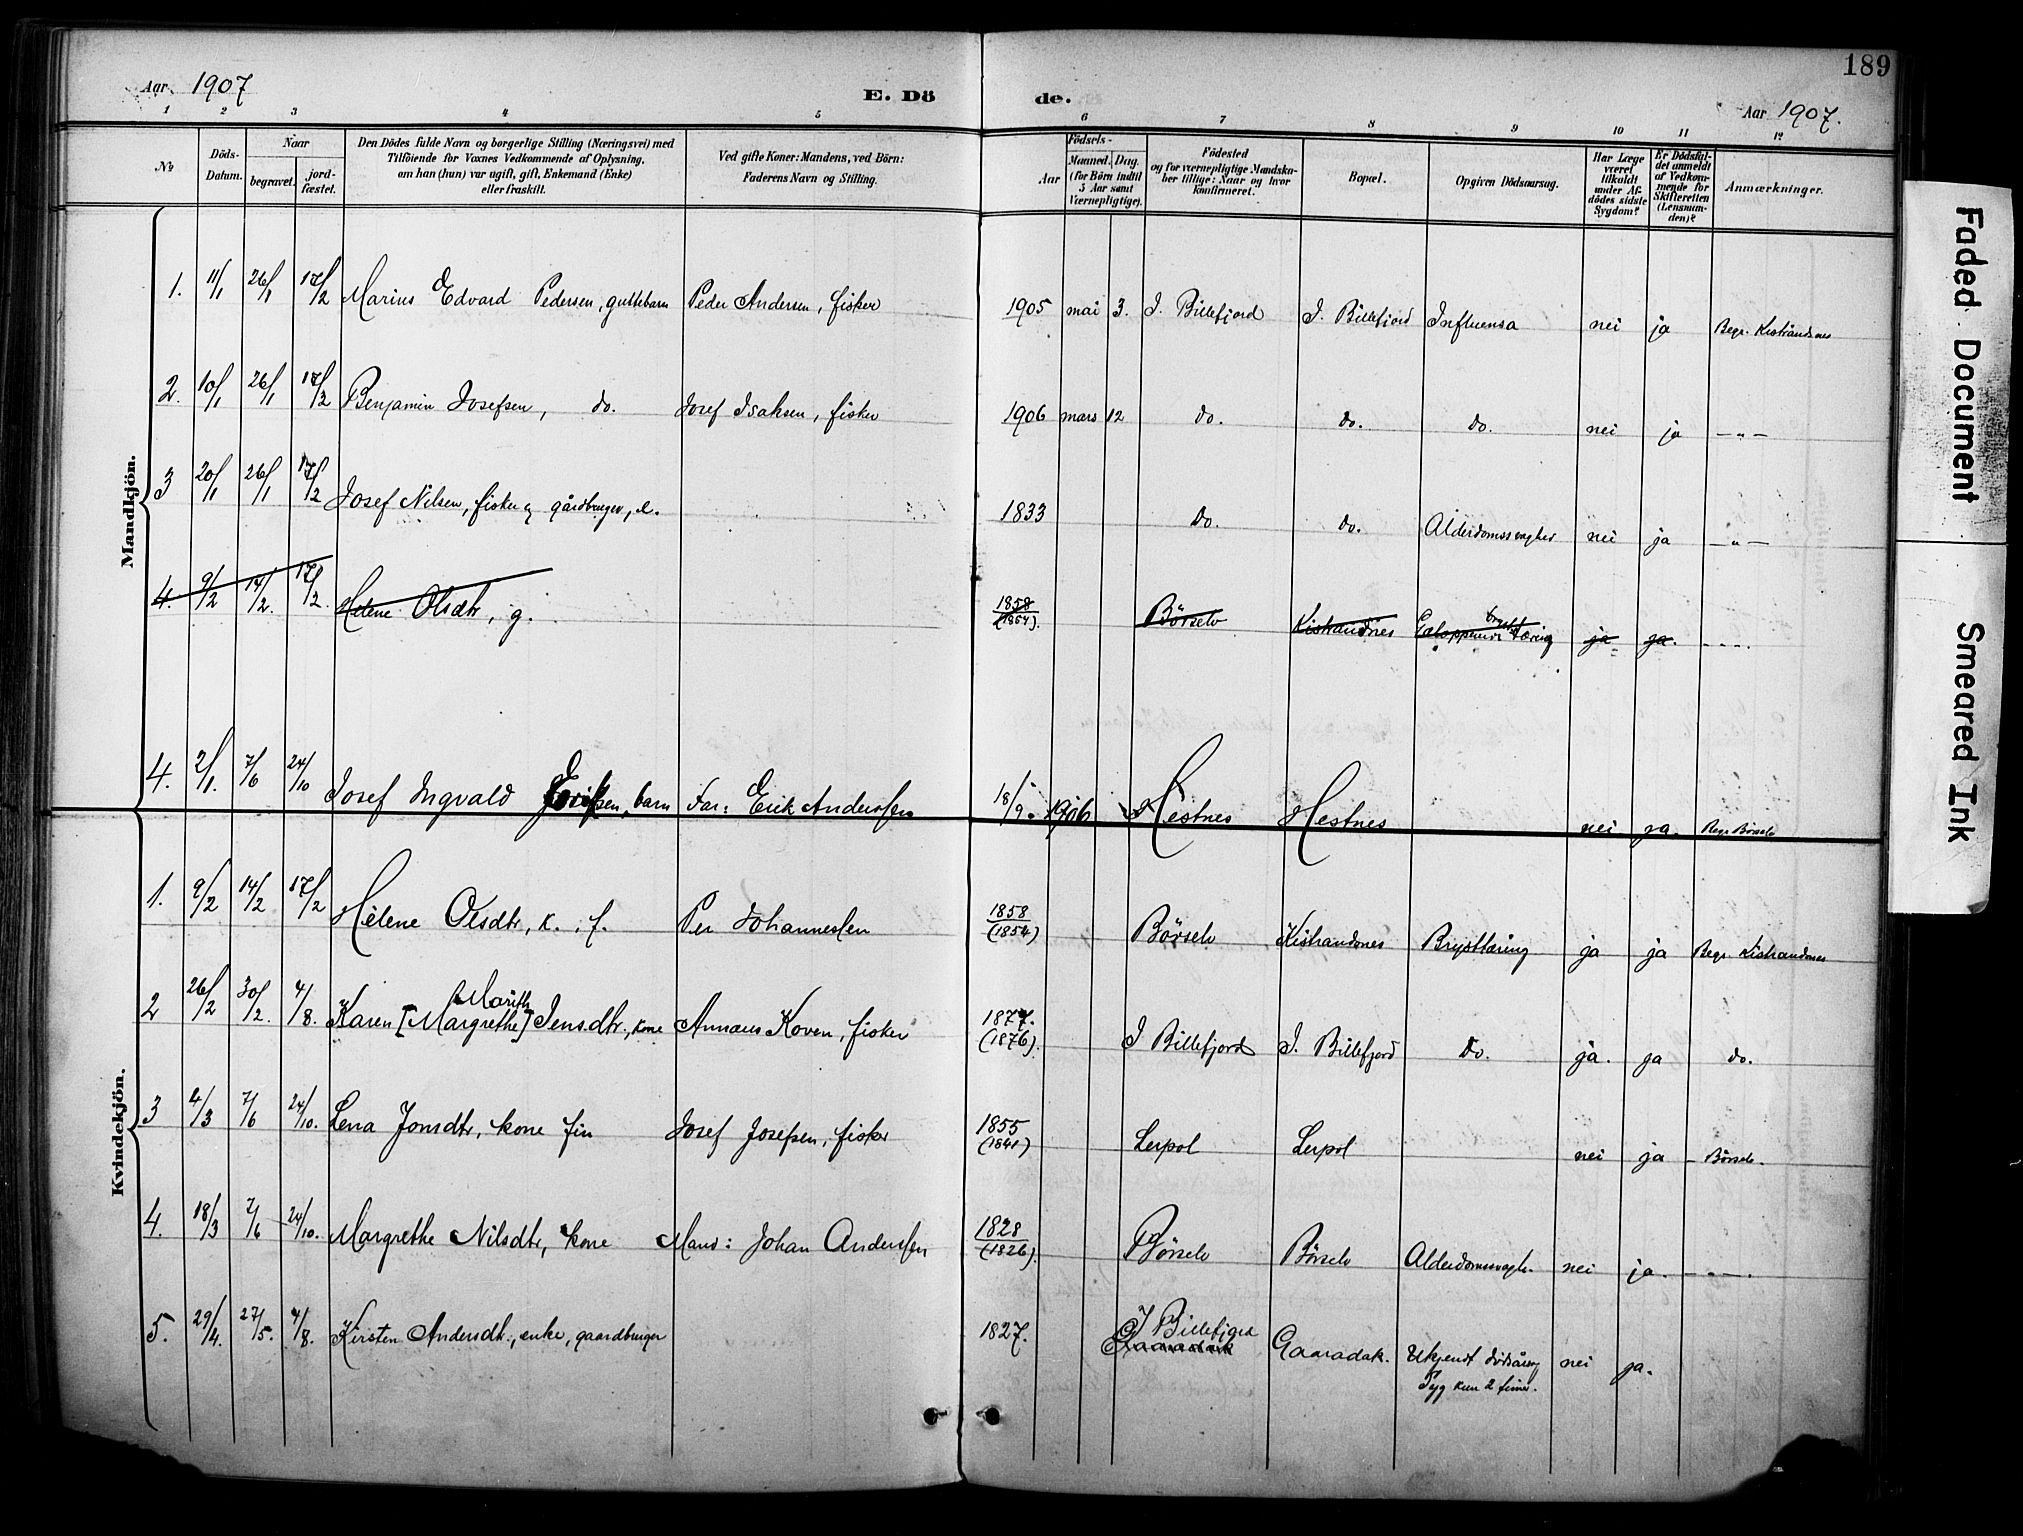 189
Aar 1907 E. Dö de. Aar 1907.
1 2 3 4 5 6 7 8 9 10 11 12
No Döds-Datum. Naar begravet. jord-fæstet. Den Dödes fulde Navn og borgerlige Stilling (Næringsvei) med Tilföiende for Voxnes Vedkommende af Oplysning, om han (hun) var ugift, gift, Enkemand (Enke) eller fraskilt. Ved gifte Koner: Mandens, ved Börn: Faderens Navn og Stilling. Födsels- Aar Maaned. Dag. (for Börn indtil 5 Aar samt Værnepligtige). Födested og for værnepligtige Mandska-ber tillige: Naar og hvor konfirmeret. Bopæl. Opgiven Dödsaarsag. Har Læge været tilkaldt under Af-dödes sidste Sygdom? Er Dödsfal-det anmeldt af Vedkom-mende for Skifteretten (Lensman-den)? Anmærkninger.
Mandkjön.
1. 11/1 26/1 17/2 Marius Edvard Pedersen, guttebarn Peder Andersen, fisker 1905 mai 3. I. Billefjord I. Billefjord Influensa nei ja Begr. Kistrandnes
2. 10/1 26/1 17/2 Benjamin Josefsen, do. Josef Isaksen, fisker 1906 mars 12 do. do. do. nei ja —"—
3 20/1 26/1 17/2 Josef Nilsen, fisker og gårdbruger, e. 1833 do. do. Alderdomssvaghed nei ja —"—
4. 9/2 14/2. 17/2. Helene Olsdtr, g. 1858 (1854). Börselv Kistrandnes Galopperende brysttæring ja ja. —"—.
4. 2/1. 7/6 24/10 Josef Ingvald Eriksen, barn Far: Erik Anderssen 18/9. 1906 Hestnes Hestnes nei ja. Begr Börselv
Kvindekjön.
1. 9/2 14/2 17/2 Helene Olsdtr, k. f. Per Johannessen 1858 (1854) Börselv Kistrandnes Brysttæring ja ja Begr. Kistrandnes
2 26/2 30/2. 4/8. Karen [Margrethe] Marith Jensdtr., kone Annaus Koven, fisker 1877. (1876). I Billefjord I. Billefjord do. ja. ja do.
3 4/3 7/6 24/10. Lena Jonsdtr, kone fin Josef Josefsen, fisker 1855 (1841) Lerpol Lerpol nei ja – Börselv.
4. 18/3 7/6 24/10. Margrethe Nilsdtr, kone Mand: Johan Anderssen 1828 (1826). Börselv Börselv Alderdomssvagh. nei ja. —"—.
5. 29/4. 27/5. 4/8. Kirsten Andersdtr., enke, gaardbruger 1827. I Billefjord Gaaradak Gaaradak. Ukjendt dödsårsag Syg kun 2 timer. nei ja.
Faded Document
Smeared Ink